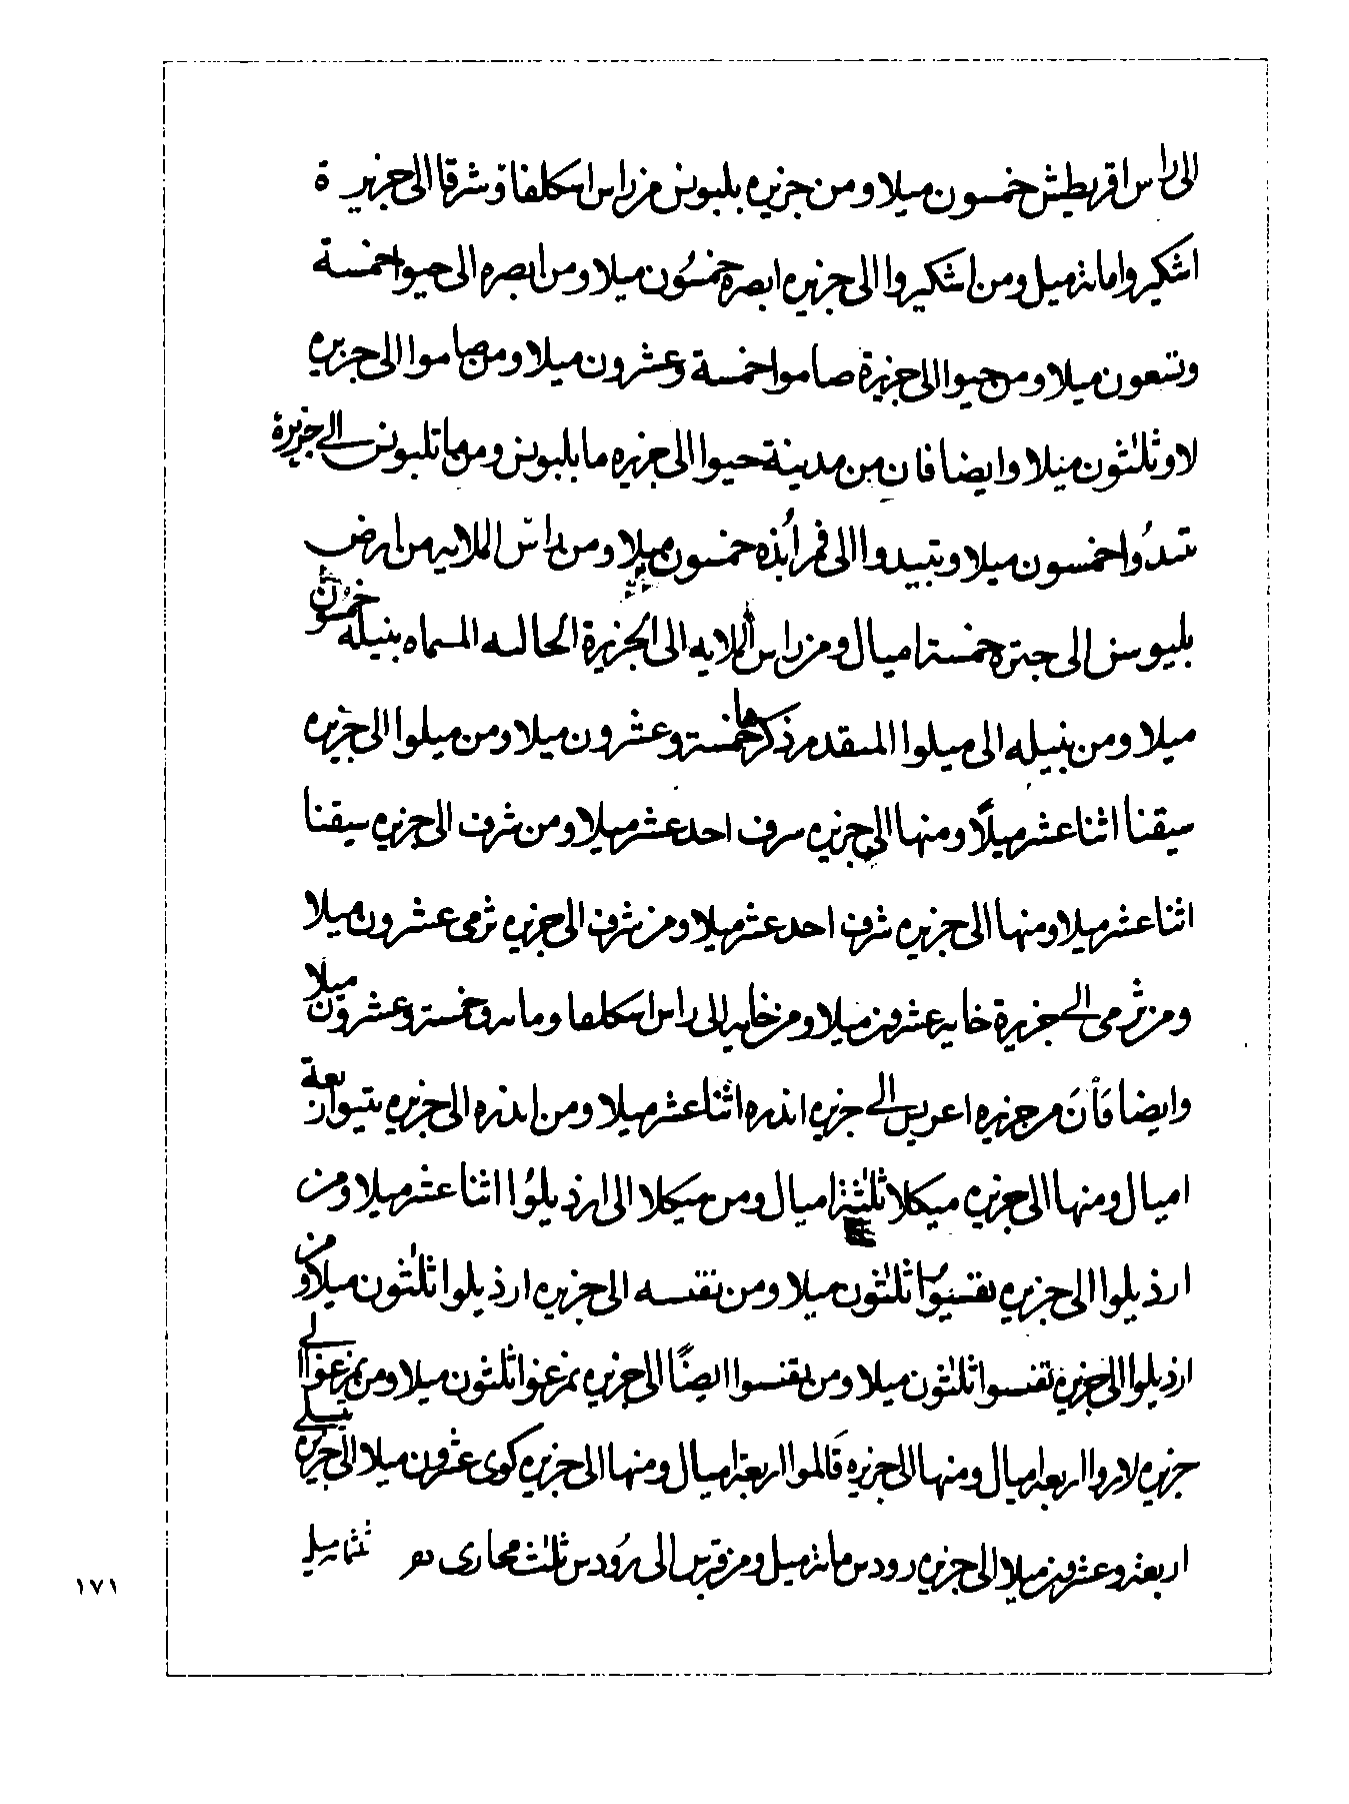 الى راس اقريطش خمسون ميلا ومن جزيره بلبونس من راس اسكلفاقو شرقا الى جزيرة
اشكيروا مائة ميل ومن اشكيروا الى جزيره ابصره خمسُون ميلا ومن ابصره الى حيوا خمسة
وتسعون ميلا ومن حيوا الى جزيرة صاموا خمسة وعشرون ميلا ومن صاموا الى جزيره
لاو ثلثون ميلا وايضا فان من مدينة حيوا الى جزيره مابلبونس ومن ماتلبونس الى جزيرة
تبدُوا خمسون ميلا وتبيدوا الى فم ابُذه خمسون ميلا ومن راس الملايه من ارض
بليوس الى جتره خمسة اميال ومن راس الملايه الى الجزيرة الخاليه المسماه بنيله خمسون
ميلا ومن بنيله الى ميلوا المتقدم ذكرها خمسة وعشرون ميلا ومن ميلوا الى جزيره
سيقنا اثنا عشر ميلًا ومنها الى جزيره سرف احد عشر ميلا ومن شرف الى جزيره سيقنا
اثنا عشر ميلا ومنها الى جزيره شرف احد عشر ميلا ومن شرف الى جزيره ثرمى عشرون ميلا
ومن ثرمى الى جزيرة خايه عشرون ميلا ومن خايه الى راس اسكلفا ومايه وخمسة وعشرون ميلا
وايضا فأن من جزيره اعريس الى جزيره اندره اثنا عشر ميلا ومن اندره الى جزيره تيوا اربعة
اميال ومنها الى جزيره ميكلا ثلثة اميال ومن ميكلا الى ارذيلوُا اثنا عشر ميلا ومن
ارذيلوا الى جزيره نقسيوُا ثلثون ميلا ومن نقسه الى جزيره ارذيلوا ثلثون ميلا ومن
ارذيلوا الى جزيره نقسوا ثلثون ميلا ومن نقسوا ايضًا الى جزيره نمرغوا ثلثون ميلا ومن نمرغوا الى
جزيره لاروا اربعة اميال ومنها الى جزيره قَالموا اربعة اميال ومنها الى جزيره كوى عشرون ميلا الى جزيره نيبلى
اربعة وعشرون ميلا الى جزيره رودس مائة ميل ومن قبرس الى رُودس ثلث مجارى ثلثمائة ميل
١٧١